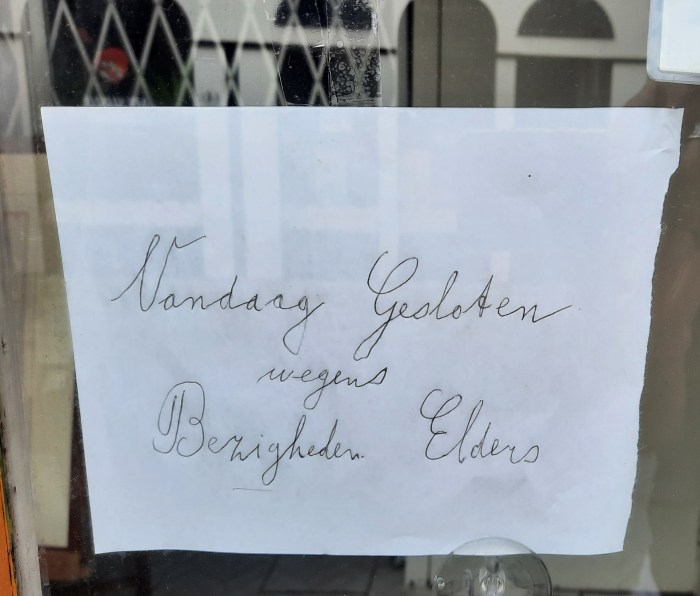 Vandaag Gesloten
wegens
Bezigheden Elders